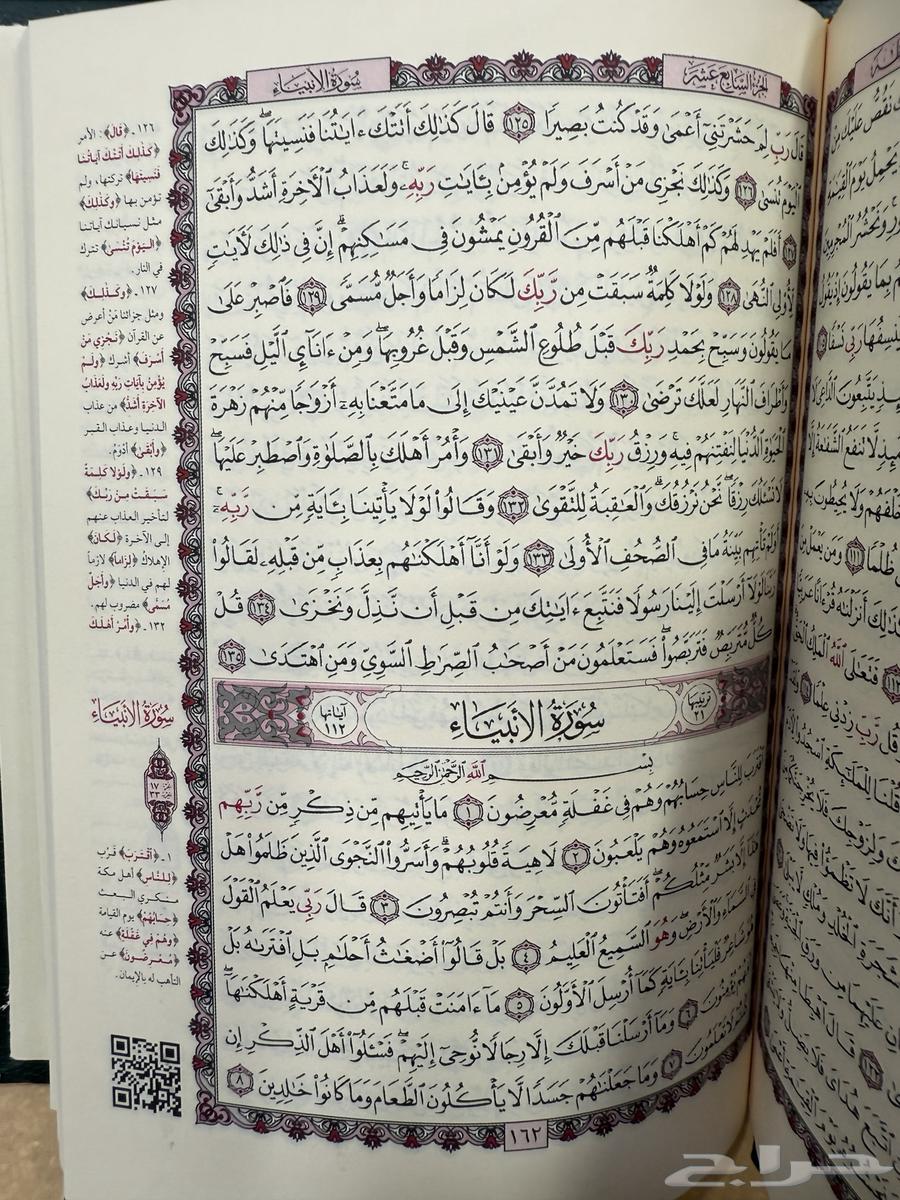 الجزء السابع عشر
سُورَةُ الأَنبِيَاءِ
قَالَ رَبِّ لِمَ حَشَرْتَنِىٓ أَعْمَىٰ وَقَدْ كُنتُ بَصِيرًا ١٢٥ قَالَ كَذَٰلِكَ أَتَتْكَ ءَايَٰتُنَا فَنَسِيتَهَا ۖ وَكَذَٰلِكَ
ٱلْيَوْمَ تُنسَىٰ ١٢٦ وَكَذَٰلِكَ نَجْزِى مَنْ أَسْرَفَ وَلَمْ يُؤْمِنۢ بِـَٔايَٰتِ رَبِّهِۦ ۚ وَلَعَذَابُ ٱلْأَخِرَةِ أَشَدُّ وَأَبْقَىٰٓ
١٢٧ أَفَلَمْ يَهْدِ لَهُمْ كَمْ أَهْلَكْنَا قَبْلَهُم مِّنَ ٱلْقُرُونِ يَمْشُونَ فِى مَسَٰكِنِهِمْ ۗ إِنَّ فِى ذَٰلِكَ لَأَيَٰتٍ
لِّأُو۟لِى ٱلنُّهَىٰ ١٢٨ وَلَوْلَا كَلِمَةٌ سَبَقَتْ مِن رَّبِّكَ لَكَانَ لِزَامًا وَأَجَلٌ مُّسَمًّى ١٢٩ فَٱصْبِرْ عَلَىٰ
مَا يَقُولُونَ وَسَبِّحْ بِحَمْدِ رَبِّكَ قَبْلَ طُلُوعِ ٱلشَّمْسِ وَقَبْلَ غُرُوبِهَا ۖ وَمِنْ ءَانَآئِ ٱلَّيْلِ فَسَبِّحْ
وَأَطْرَافَ ٱلنَّهَارِ لَعَلَّكَ تَرْضَىٰ ١٣٠ وَلَا تَمُدَّنَّ عَيْنَيْكَ إِلَىٰ مَا مَتَّعْنَا بِهِۦٓ أَزْوَٰجًا مِّنْهُمْ زَهْرَةَ
ٱلْحَيَوٰةِ ٱلدُّنْيَا لِنَفْتِنَهُمْ فِيهِ ۚ وَرِزْقُ رَبِّكَ خَيْرٌ وَأَبْقَىٰ ١٣١ وَأْمُرْ أَهْلَكَ بِٱلصَّلَوٰةِ وَٱصْطَبِرْ عَلَيْهَا ۖ
لَا نَسْـَٔلُكَ رِزْقًا ۖ نَّحْنُ نَرْزُقُكَ ۗ وَٱلْعَٰقِبَةُ لِلتَّقْوَىٰ ١٣٢ وَقَالُوا۟ لَوْلَا يَأْتِينَا بِـَٔايَةٍ مِّن رَّبِّهِۦٓ ۚ
أَوَلَمْ تَأْتِهِم بَيِّنَةُ مَا فِى ٱلصُّحُفِ ٱلْأُولَىٰ ١٣٣ وَلَوْ أَنَّآ أَهْلَكْنَٰهُم بِعَذَابٍ مِّن قَبْلِهِۦ لَقَالُوا۟
رَبَّنَا لَوْلَآ أَرْسَلْتَ إِلَيْنَا رَسُولًا فَنَتَّبِعَ ءَايَٰتِكَ مِن قَبْلِ أَن نَّذِلَّ وَنَخْزَىٰ ١٣٤ قُلْ
كُلٌّ مُّتَرَبِّصٌ فَتَرَبَّصُوا۟ ۖ فَسَتَعْلَمُونَ مَنْ أَصْحَٰبُ ٱلصِّرَٰطِ ٱلسَّوِىِّ وَمَنِ ٱهْتَدَىٰ ١٣٥
ترتيبها ٢١ سُورَةُ الأَنبِيَاءِ آياتها ١١٢
بِسْمِ ٱللَّهِ ٱلرَّحْمَٰنِ ٱلرَّحِيمِ
ٱقْتَرَبَ لِلنَّاسِ حِسَابُهُمْ وَهُمْ فِى غَفْلَةٍ مُّعْرِضُونَ ١ مَا يَأْتِيهِم مِّن ذِكْرٍ مِّن رَّبِّهِم
مُّحْدَثٍ إِلَّا ٱسْتَمَعُوهُ وَهُمْ يَلْعَبُونَ ٢ لَاهِيَةً قُلُوبُهُمْ ۗ وَأَسَرُّوا۟ ٱلنَّجْوَى ٱلَّذِينَ ظَلَمُوا۟ هَلْ
هَٰذَآ إِلَّا بَشَرٌ مِّثْلُكُمْ ۖ أَفَتَأْتُونَ ٱلسِّحْرَ وَأَنتُمْ تُبْصِرُونَ ٣ قَالَ رَبِّى يَعْلَمُ ٱلْقَوْلَ
فِى ٱلسَّمَآءِ وَٱلْأَرْضِ ۖ وَهُوَ ٱلسَّمِيعُ ٱلْعَلِيمُ ٤ بَلْ قَالُوٓا۟ أَضْغَٰثُ أَحْلَٰمٍۭ بَلِ ٱفْتَرَىٰهُ بَلْ
هُوَ شَاعِرٌ فَلْيَأْتِنَا بِـَٔايَةٍ كَمَآ أُرْسِلَ ٱلْأَوَّلُونَ ٥ مَآ ءَامَنَتْ قَبْلَهُم مِّن قَرْيَةٍ أَهْلَكْنَٰهَآ ۖ
أَفَهُمْ يُؤْمِنُونَ ٦ وَمَآ أَرْسَلْنَا قَبْلَكَ إِلَّا رِجَالًا نُّوحِىٓ إِلَيْهِمْ ۖ فَسْـَٔلُوٓا۟ أَهْلَ ٱلذِّكْرِ إِن
كُنتُمْ لَا تَعْلَمُونَ ٧ وَمَا جَعَلْنَٰهُمْ جَسَدًا لَّا يَأْكُلُونَ ٱلطَّعَامَ وَمَا كَانُوا۟ خَٰلِدِينَ ٨
١٦٢
١٢٦ ـ ﴿قَالَ﴾: الأمر
﴿كَذَلِكَ أَتَتْكَ آيَاتُنَا
فَنَسِيتَهَا﴾ تركتها، ولم
تؤمن بها ﴿وَكَذَلِكَ﴾
مثل نسيانك آياتنا
﴿الْيَوْمَ تُنْسَى﴾ تترك
في النار.
١٢٧ ـ ﴿وَكَذَلِكَ﴾
ومثل جزائنا مَنْ أعرض
عن القرآن ﴿نَجْزِي مَنْ
أَسْرَفَ﴾ أشرك ﴿وَلَمْ
يُؤْمِنْ بِآيَاتِ رَبِّهِ وَلَعَذَابُ
الآخِرَةِ أَشَدُّ﴾ من عذاب
الدنيا وعذاب القبر
﴿وَأَبْقَى﴾ أدوَمُ.
١٢٩ ـ ﴿وَلَوْلا كَلِمَةٌ
سَبَقَتْ مِنْ رَبِّكَ﴾
لتأخير العذاب عنهم
إلى الآخرة ﴿لَكَانَ﴾
الإهلاكُ ﴿لِزَاماً﴾ لازماً
لهم في الدنيا ﴿وَأَجَلٌ
مُسَمًّى﴾ مضروب لهم.
١٣٢ ـ ﴿وَأْمُرْ أَهْلَكَ
سُورَةُ الأَنبِيَاءِ
١٧
٣٣
١ ـ ﴿اقْتَرَبَ﴾ قَرُب
﴿لِلنَّاسِ﴾ أهل مكة
منكري البعث
﴿حِسَابُهُمْ﴾ يوم القيامة
﴿وَهُمْ فِي غَفْلَةٍ﴾ عنه
﴿مُعْرِضُونَ﴾ عن
التأهب له بالإيمان.
حراج